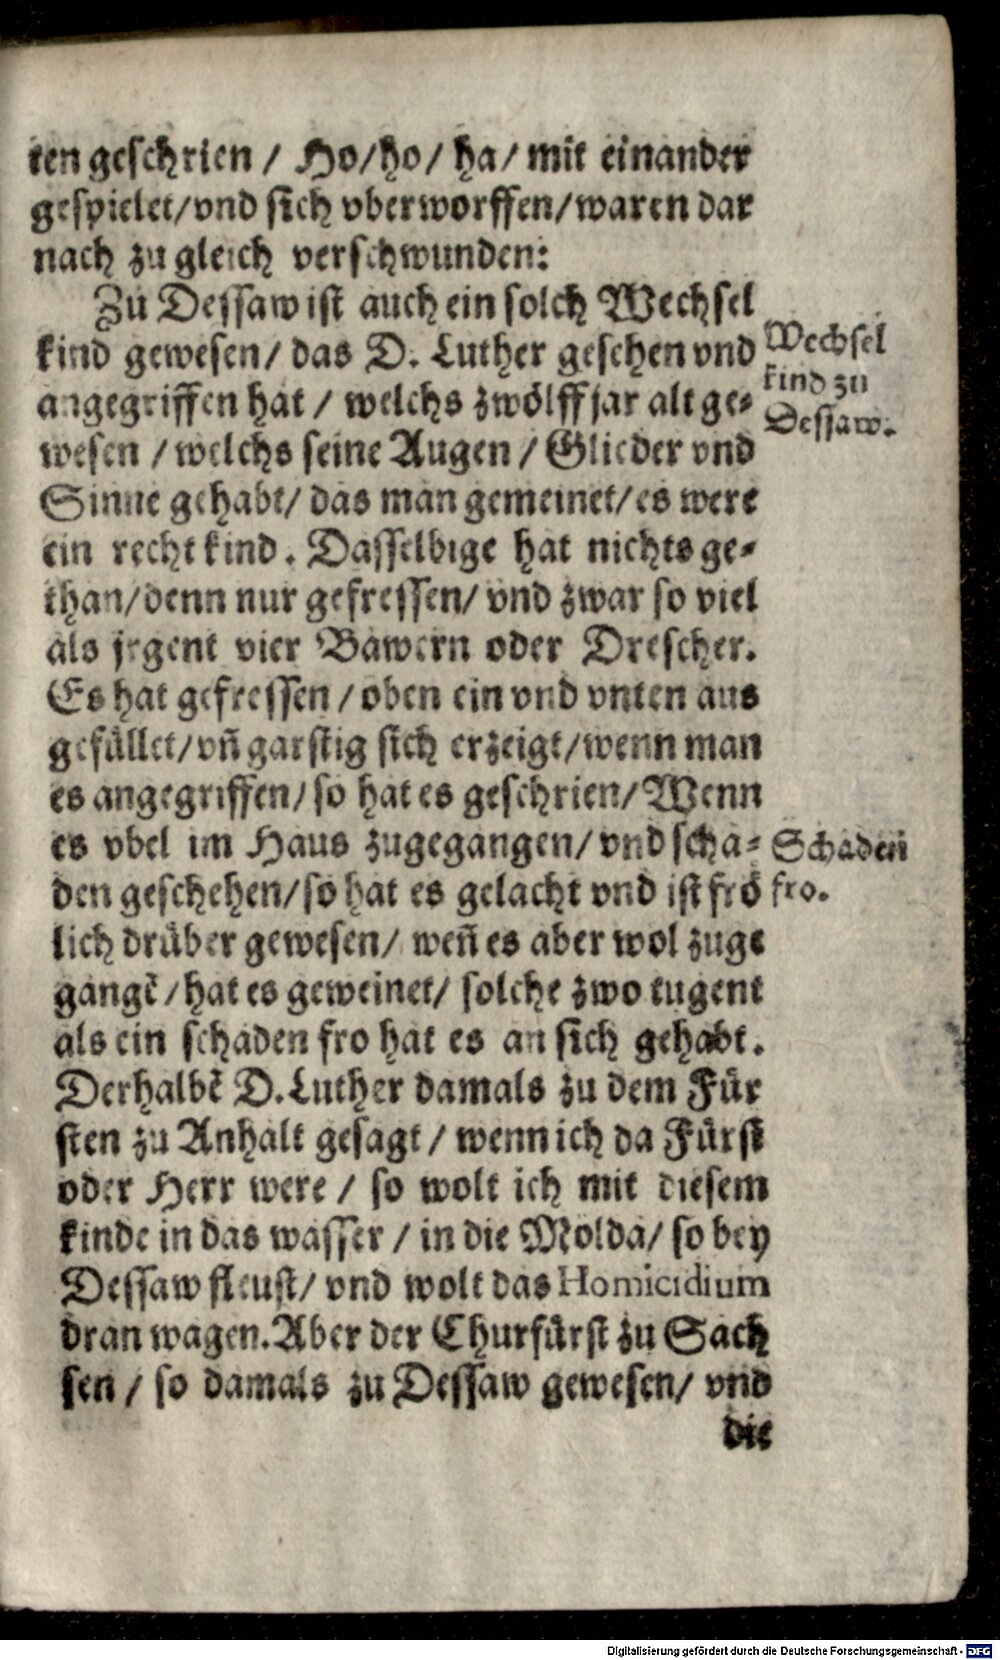 ten geschrien / Ho/ho/ ha/ mit einander
gespielet/vnd sich vberworffen/waren dar
nach zu gleich verschwunden:
Zu Dessaw ist auch ein solch Wechsel
kind gewesen/ das D. Luther gesehen vnd
angegriffen hat / welchs zwölff jar alt ge⸗
wesen / welchs seine Augen / Glieder vnd
Sinne gehabt/ das man gemeinet/ es were
ein recht kind. Dasselbige hat nichts ge⸗
than/denn nur gefressen/ vnd zwar so viel
als jrgent vier Bawern oder Drescher.
Es hat gefressen / oben ein vnd vnten aus
gefüllet/vñ garstig sich erzeigt/wenn man
es angegriffen/ so hat es geschrien/ Wenn
es vbel im Haus zugegangen/ vnd scha⸗
den geschehen/so hat es gelacht vnd ist frö
lich drüber gewesen/ weñ es aber wol zuge
gangē /hat es geweinet/ solche zwo tugent
als ein schaden fro hat es an sich gehabt.
Derhalbē D. Luther damals zu dem Für
sten zu Anhalt gesagt / wenn ich da Fürst
oder Herr were / so wolt ich mit diesem
kinde in das wasser / in die Molda/ so bey
Dessaw fleust/ vnd wolt das Homicidium
dran wagen. Aber der Churfürst zu Sach
sen / so damals zu Dessaw gewesen/ vnd
die
Wechsel
kind zu
Dessaw.
Schaden
fro.
Digitalisierung gefördert durch die Deutsche Forschungsgemeinschaft - DFG